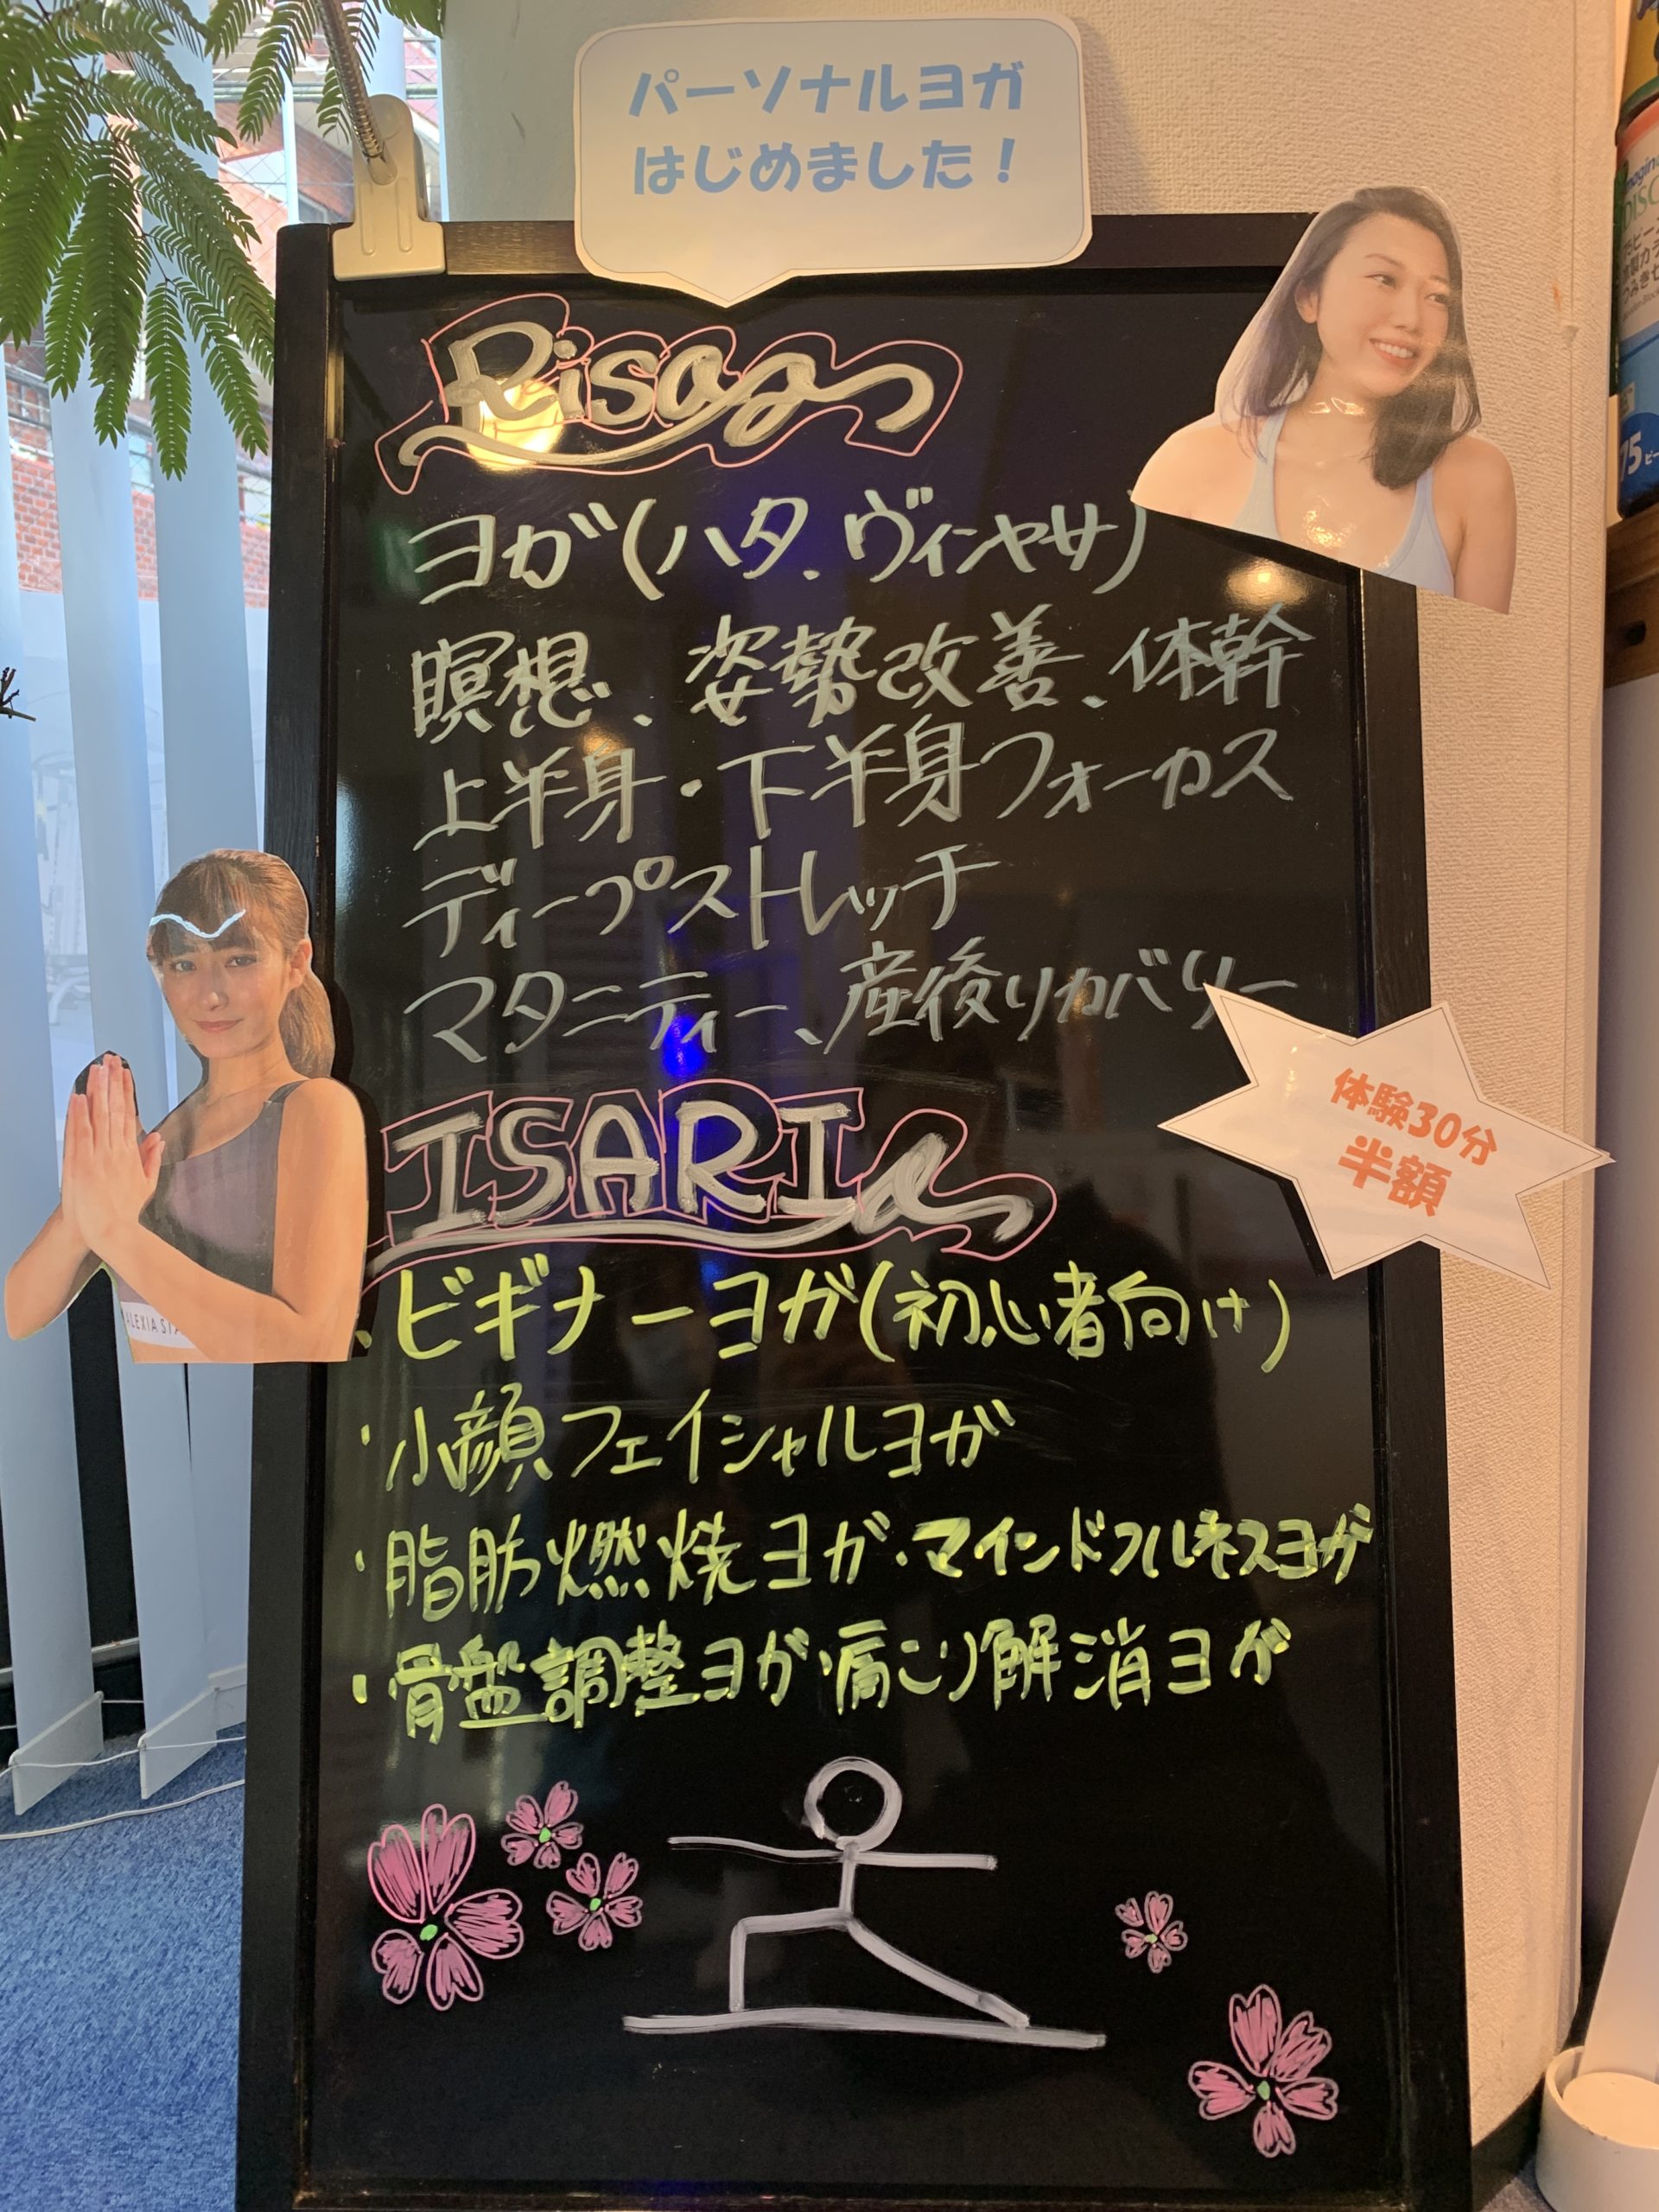 パーソナルヨガ
はじめました！
Risa
ヨガ(ハタ、ヴィンヤサ)
瞑想、姿勢改善、体幹
上半身・下半身フォーカス
ディープストレッチ
マタニティー、産後リカバリー
体験30分
半額
ISARI
・ビギナーヨガ(初心者向け)
・小顔フェイシャルヨガ
・脂肪燃焼ヨガ・マインドフルネスヨガ
・骨盤調整ヨガ・肩こり解消ヨガ